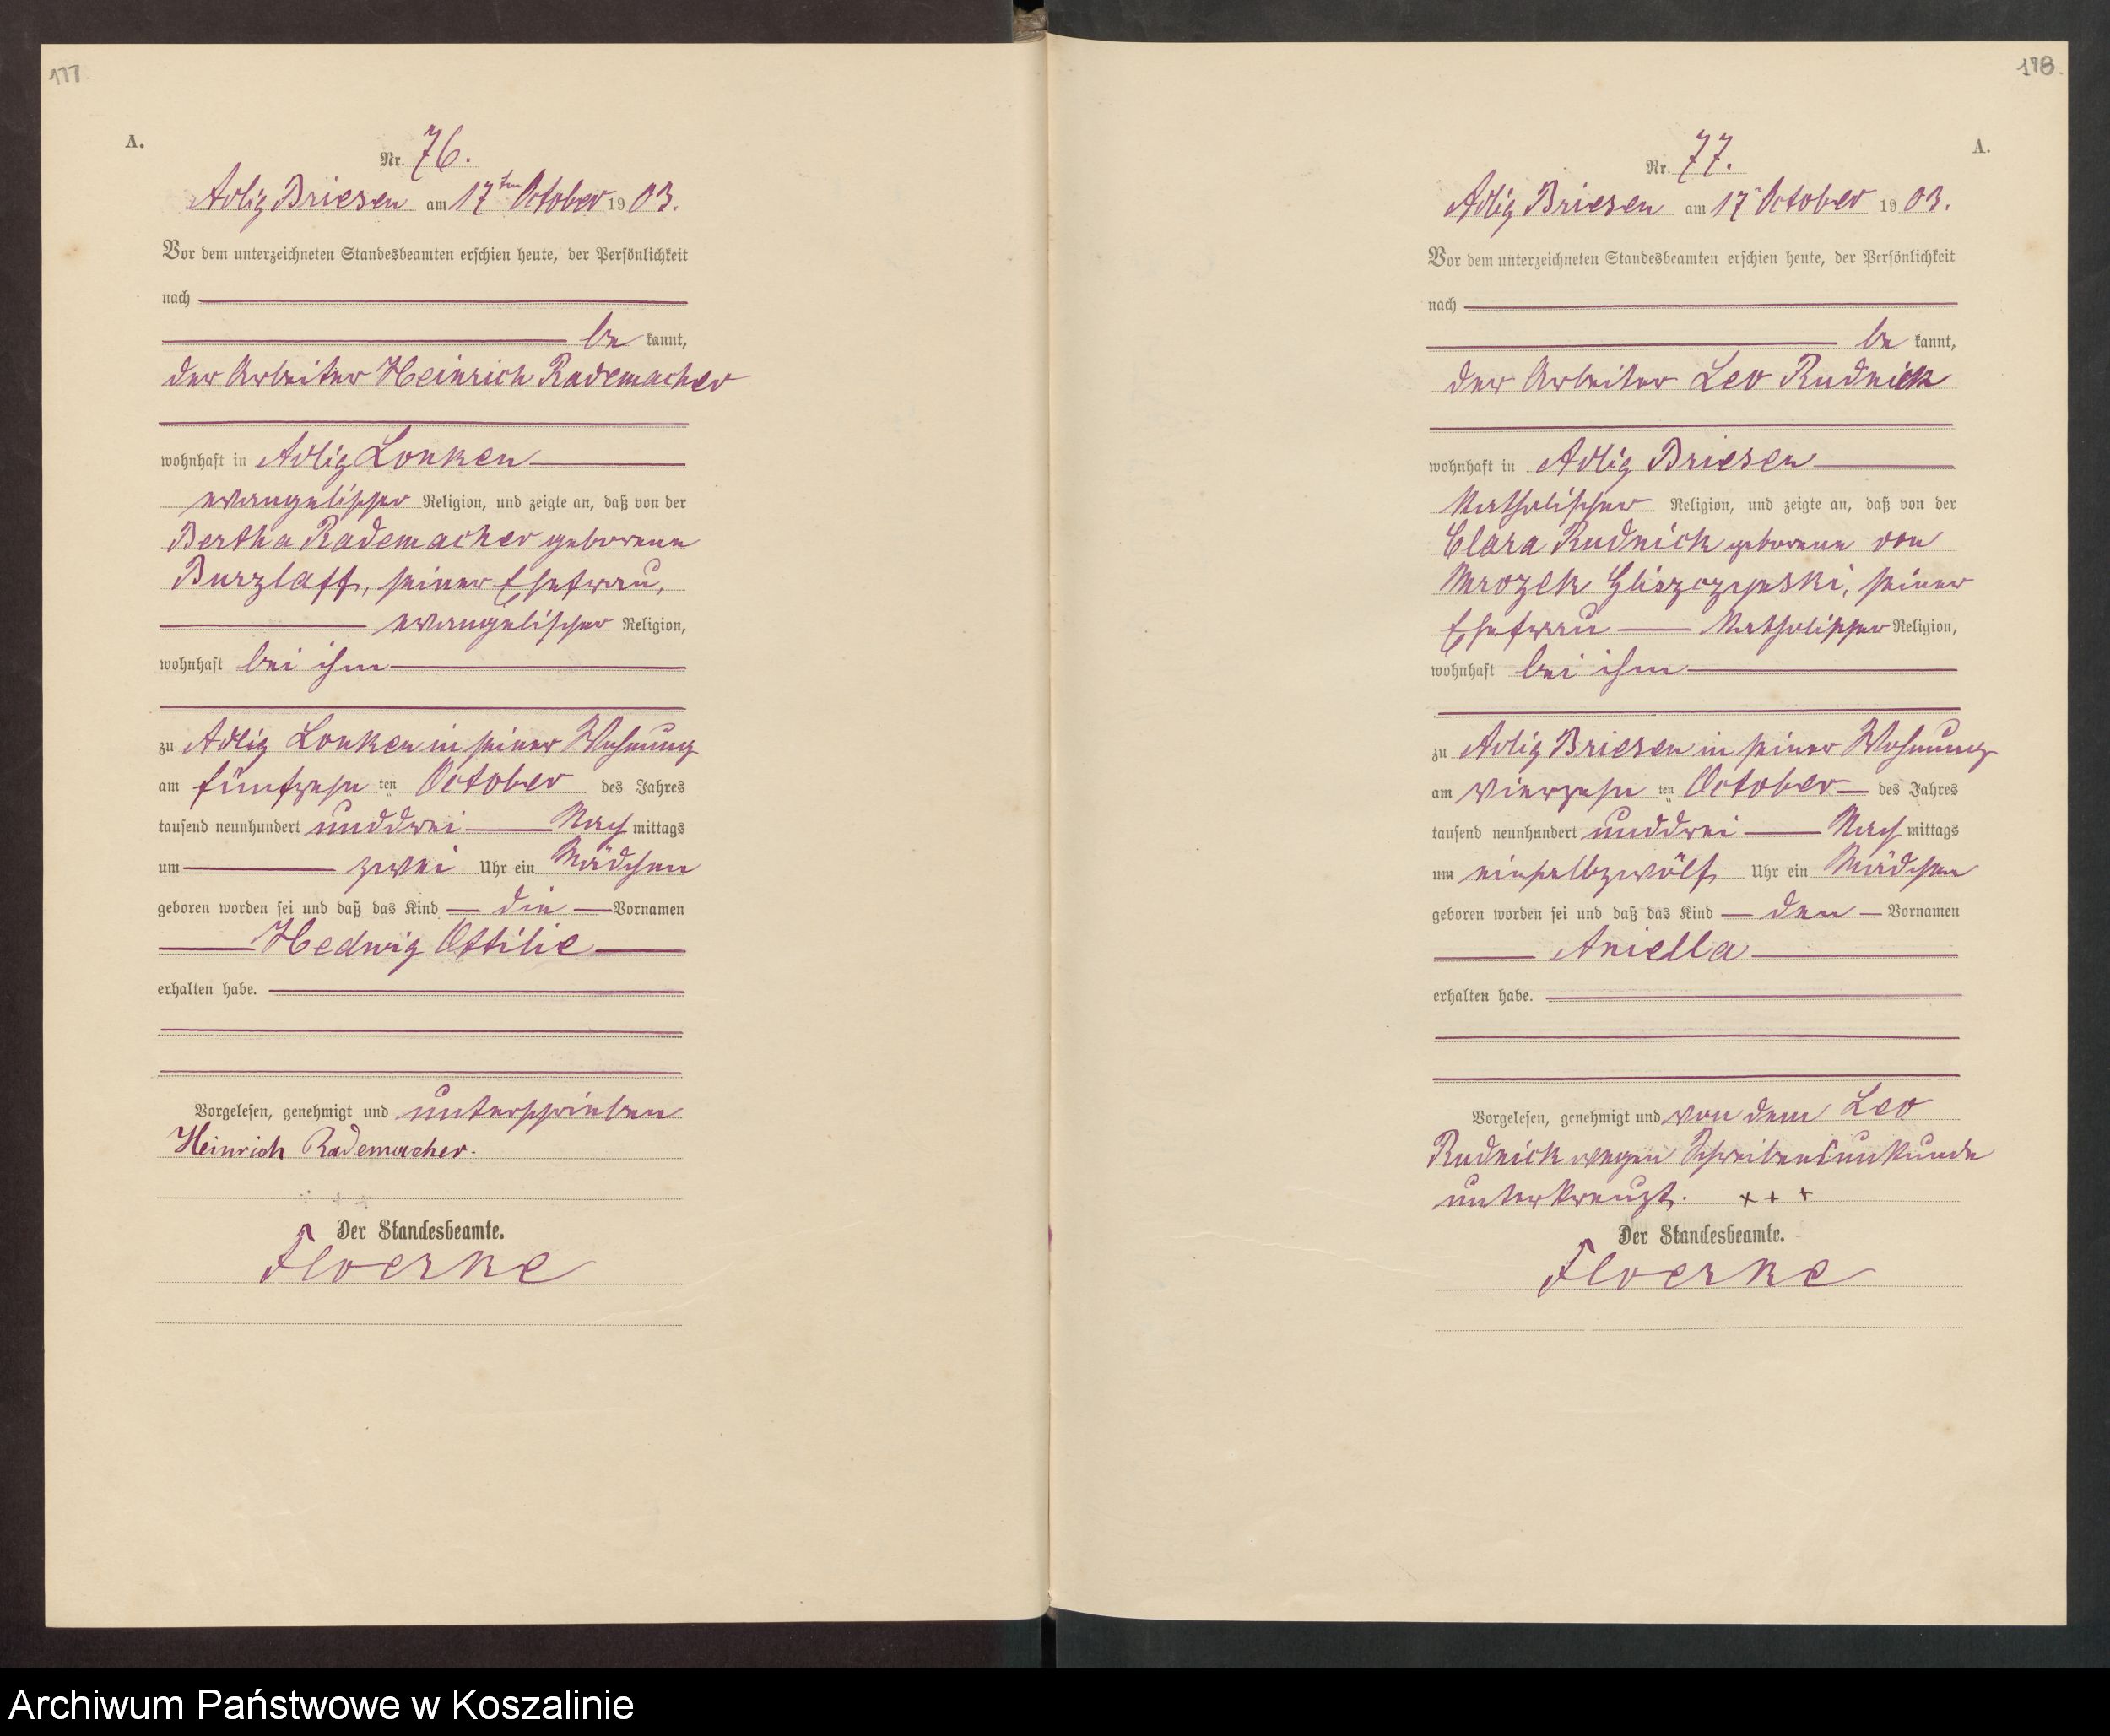 177.
A.
Nr. 76.
Adlig Briesen am 17ten October 1903.
Vor dem unterzeichneten Standesbeamten erschien heute, der Persönlichkeit
nach
be kannt,
der Arbeiter Heinrich Rademacher
wohnhaft in Adlig Lonken
evangelischer Religion, und zeigte an, daß von der
Bertha Rademacher geborene
Burzlaff, seiner Ehefrau,
evangelischer Religion,
wohnhaft bei ihm
zu Adlig Lonken in seiner Wohnung
am fünfzehn ten October des Jahres
tausend neunhundert unddrei Nach mittags
um zwei Uhr ein Mädchen
geboren worden sei und daß das Kind die Vornamen
Hedwig Ottilie
erhalten habe.
Vorgelesen, genehmigt und unterschrieben
Heinrich Rademacher.
Der Standesbeamte.
Floerke
178.
A.
Nr. 77.
Adlig Briesen am 17 October 1903.
Vor dem unterzeichneten Standesbeamten erschien heute, der Persönlichkeit
nach
be kannt,
der Arbeiter Leo Rudnick
wohnhaft in Adlig Briesen
katholischer Religion, und zeigte an, daß von der
Clara Rudnick geborene von
Mrozek Gliszczynski, seiner
Ehefrau katholischer Religion,
wohnhaft bei ihm
zu Adlig Briesen in seiner Wohnung
am vierzehn ten October des Jahres
tausend neunhundert unddrei Nach mittags
um einhalbzwölf Uhr ein Mädchen
geboren worden sei und daß das Kind den Vornamen
Aniella
erhalten habe.
Vorgelesen, genehmigt und von dem Leo
Rudnick wegen Schreibensunkunde
unterkreuzt. + + +
Der Standesbeamte.
Floerke
Archiwum Państwowe w Koszalinie